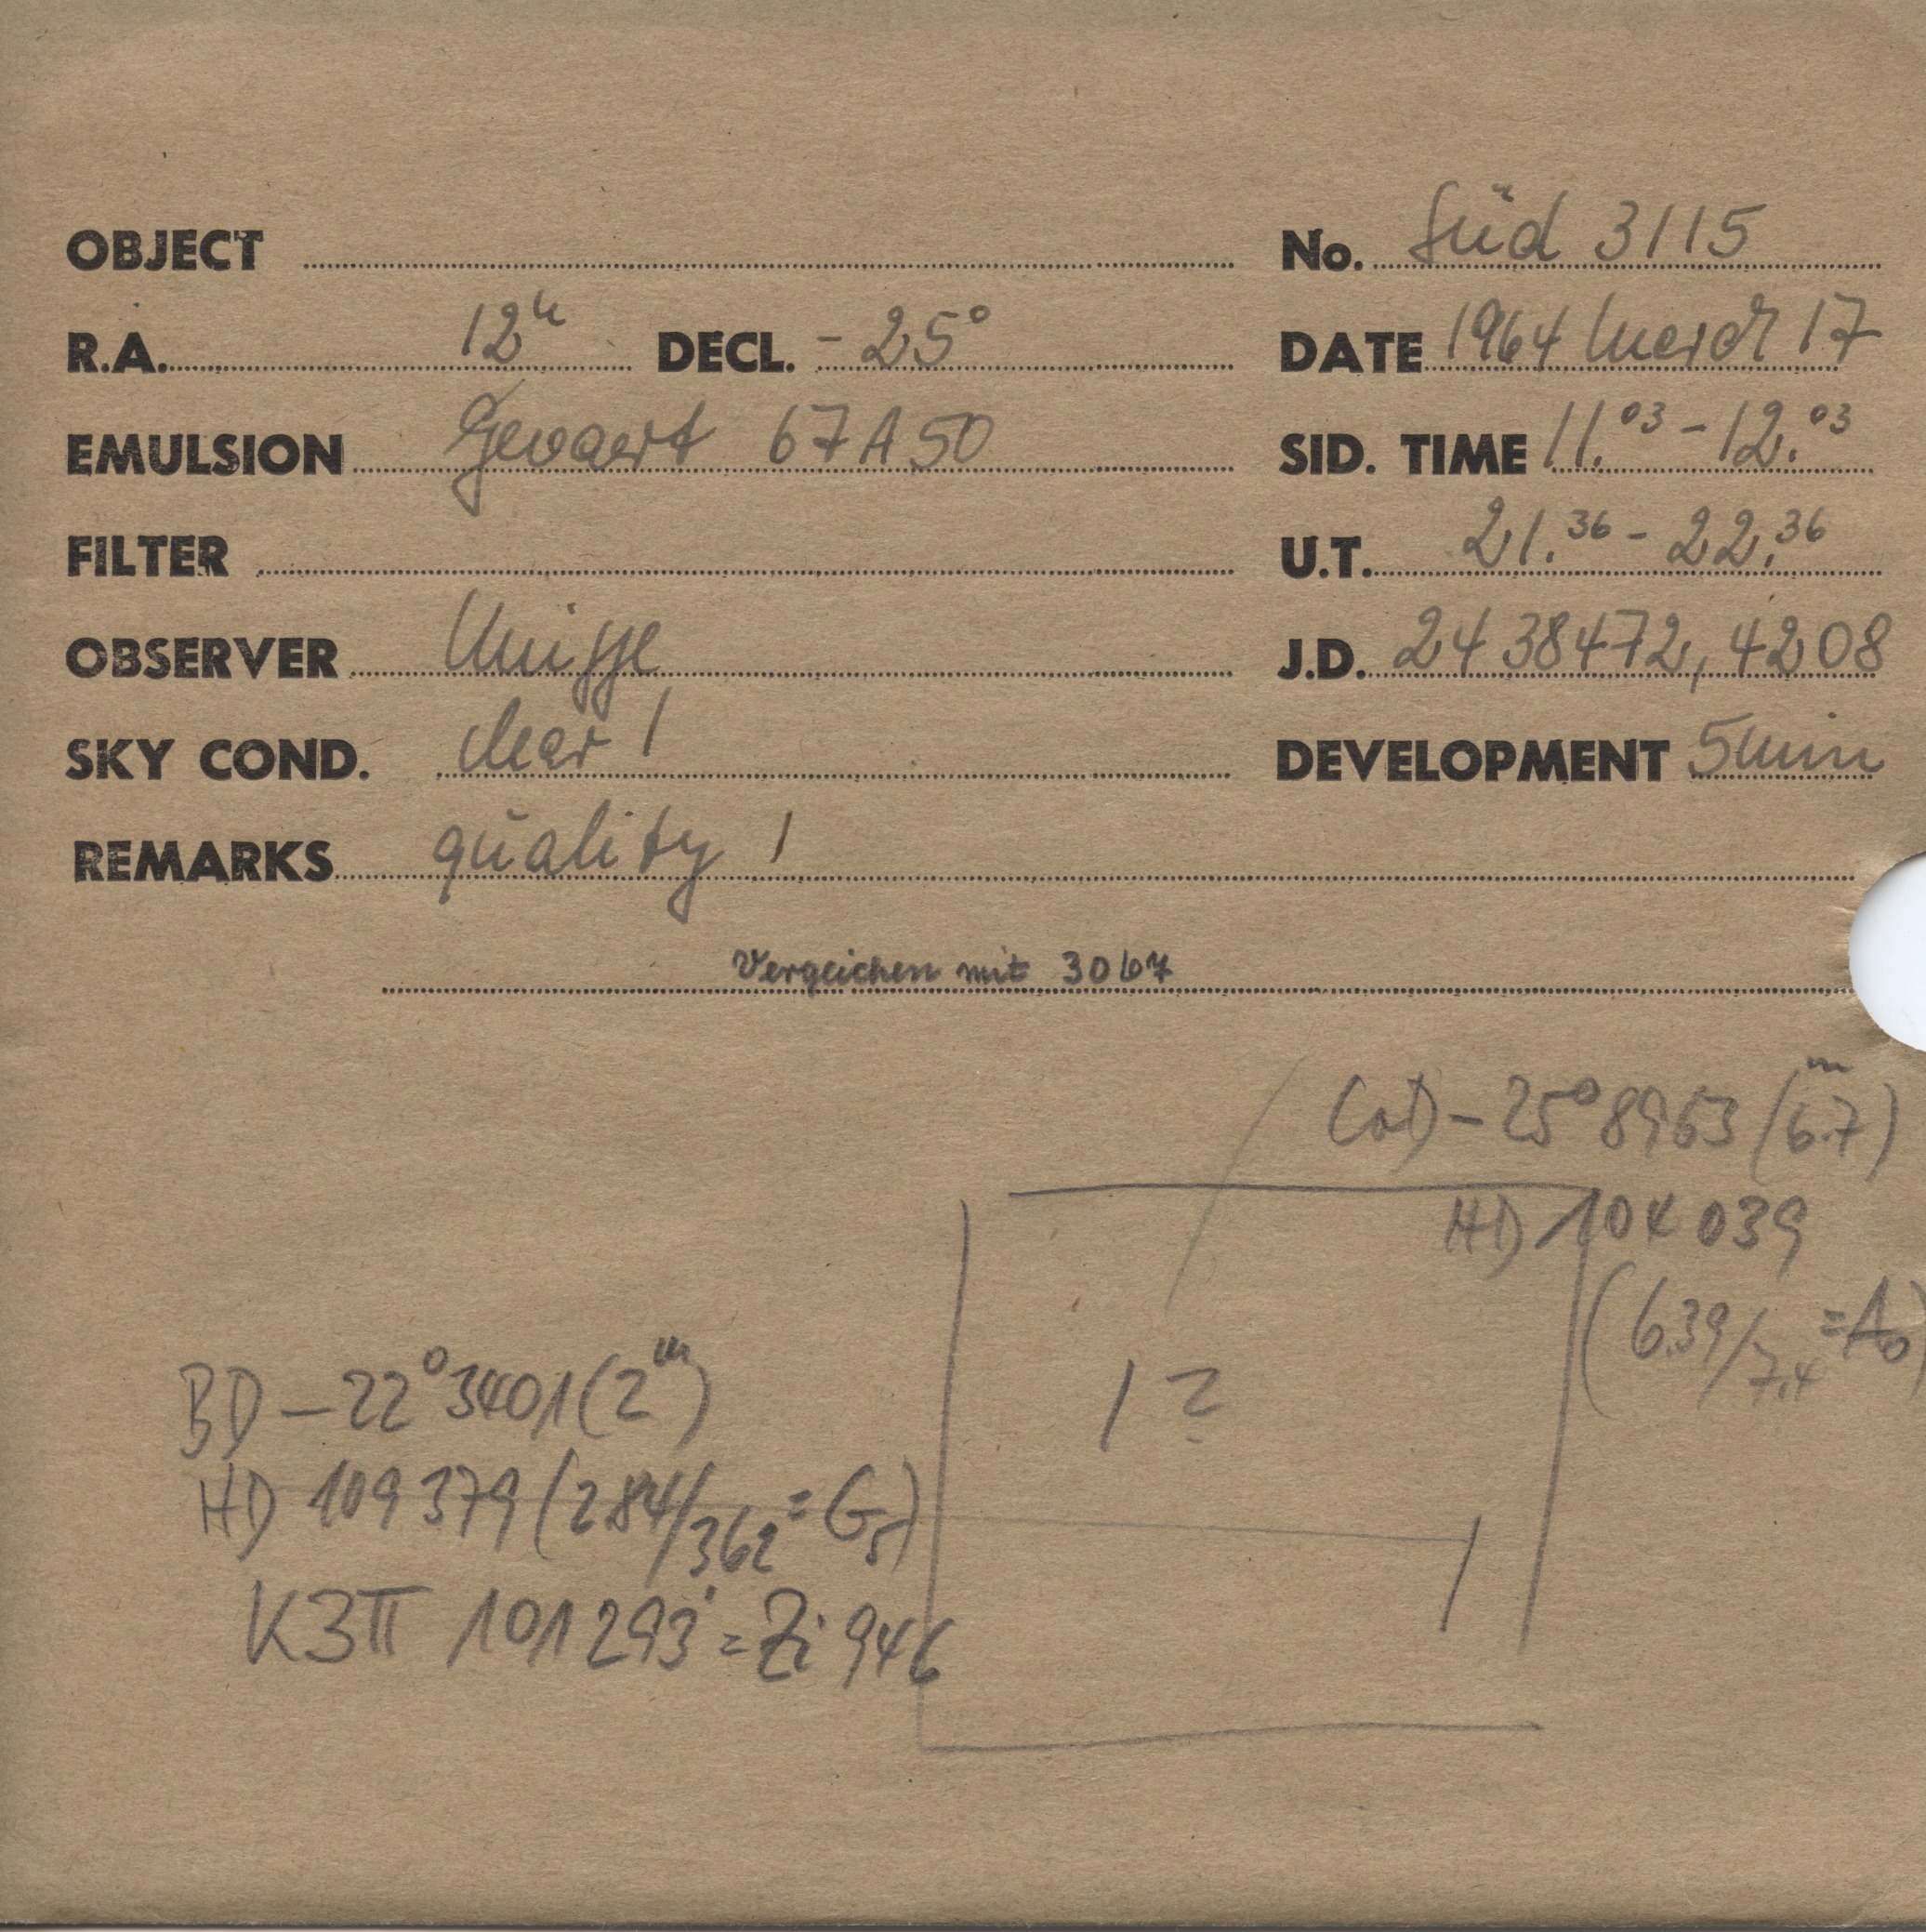 OBJECT No. Süd 3115
R.A. 12h DECL. -25° DATE 1964 March 17
EMULSION Gevaert 67A50 SID. TIME 11.03 - 12.03
FILTER U.T. 21.36 - 22.36
OBSERVER J.D. 2438472,4208
SKY COND. clear 1 DEVELOPMENT 5min
REMARKS quality 1
Vergeichen mit 3067
CoD -25° 8963 (6.7m)
HD 104039
(6.39/7.4 = A0)
1 ?
BD -22° 3401 (2m)
HD 109379 (2.84/3.62 = G5)
КЗП 101293 = Zi 946